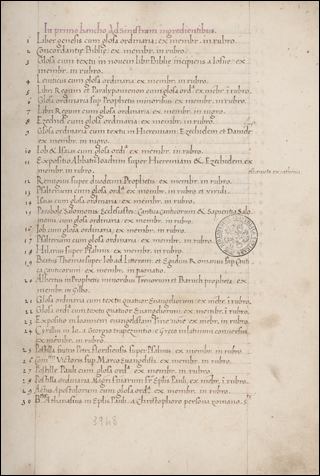 In primo bancho ad sinistram ingredientibus.
1 Liber genesis cum glosa ordinaria: ex membr. in rubro.
2 Concordantię Biblię ex membr. in rubro.
3 Glosa cum textu in novem libr Biblię incipiens a Iosue: ex
membr. in rubro.
4 Leviticus cum glosa ordinaria ex membr. in rubro.
5 Libri Regum et Paralypomenon cum glosa ordª ex mebr. i rubro
6 Glosa ordinaria sup Prophetis minoribus ex membr. in rubro.
7 Libri Regum cum glosa ordinaria: ex membr. in nigro.
8 Ezechiel cum glosa ordinaria: ex membr. in rubro.
9 Glosa ordinaria cum textu in Hieremiam: Ezechielem et Danielē
ex membr. in nigro.
10 Iob & Isaias cum glosa ordª ex membr. in rubro.
11 Expositio Abbatis Ioachim super Hieremiam & Ezechielem ex
membr. in rubro.
12 Remigius super duodecim Prophetis: ex membr. in rubro.
13 Psalterium cum glosa ordª ex membr. in rubro et viridi.
14 Isaias cum glosa ordinaria ex membr. in rubro.
15 Parabolę Salomonis Ecclesiastes: Cantica canticorum & Sapientia Salo
monis cum glosa ordinaria: ex membr. in rubro.
16 Iob cum glosa ordinaria, ex membr. in rubro.
17 Psalterium cum glosa ordinaria: ex membr. in rubro.
18 Hilarius super psalmis: ex membr. in rubro.
19 Beatus Thomas super Iob ad litteram: et Egidius Romanus sup Canti
ca canticorum: ex membr. in
20 Albertus in Prophetis minoribus Trenorum et Baruch propheta: ex
membr. in
21 Glosa ordinaria cum textu quatuor Evangeliorum: ex mebr. i rubro.
22 Glosa ordª cum textu quatuor Evangeliorum: ex membr. in rubro.
23 Expositio in Ioannem evangelistam ex membr. in rubro.
24 Cyrillus in Io. a Georgio trapezuntio e gręco in latinum conversus
ex membr. in rubro.
25 super Psalmis: ex membr. in rubro.
26 Victoris sup Marco Evangelista: ex membr. in rubro.
27 Postillę Pauli cum glosa ordª ex membr. in rubro.
28 Postilla ordinaria super Eplis Pauli, ex membr. i rubro.
29 Actus Apostolorum cum glosa ordª ex membr. in rubro.
30 Athanasius in Eplis Pauli a Christophoro persona romano.
3948